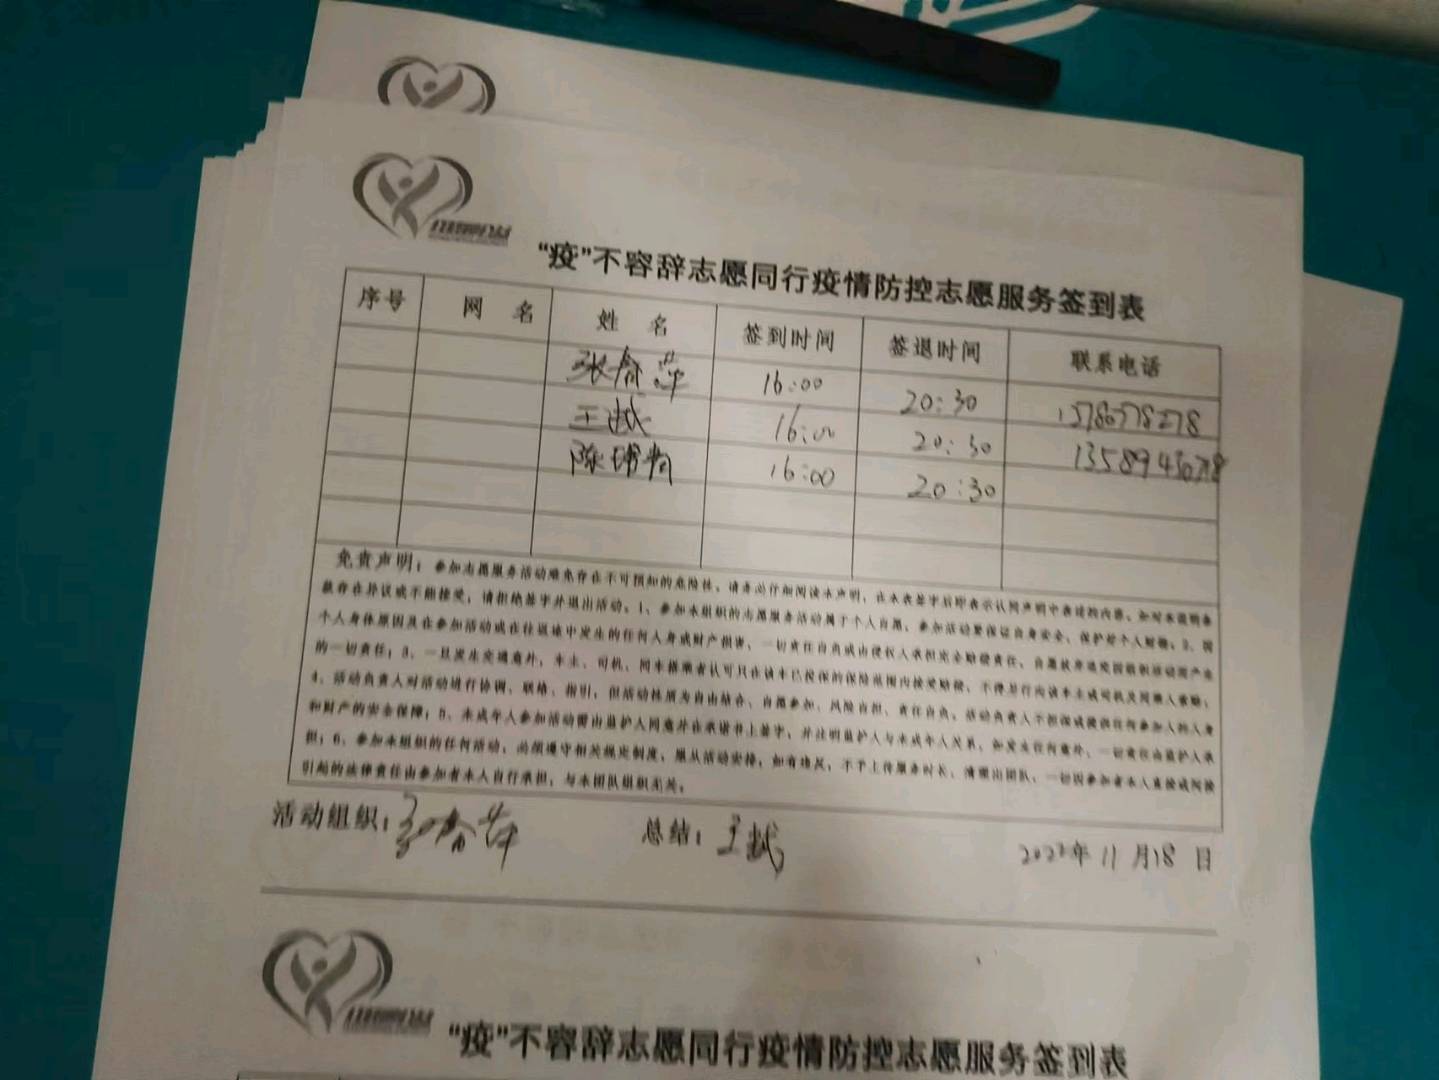 “疫”不容辞志愿同行疫情防控志愿服务签到表
序号 网 名 姓 名 签到时间 签退时间 联系电话
张春萍 16:00 20:30
王斌 16:00 20:30
陈 16:00 20:30
免责声明：参加志愿服务活动难免存在不可预知的危险性。请务必仔细阅读本声明，在本表签字后即表示认同声明中表述的内容。如对本说明条
款存在异议或不能接受，请拒绝签字并退出活动。1、参加本组织的志愿服务活动属于个人自愿，参加活动要保证自身安全，保护好个人财物。2、因
个人身体原因及在参加活动或在往返途中发生的任何人身或财产损害，一切责任自负或由侵权人承担完全赔偿责任，自愿放弃追究因组织活动而产生
的一切责任；3、一旦发生交通意外，车主、司机、同车搭乘者认可只在该车已投保的保险范围内接受赔偿，不得另行向该车主或司机及同乘人索赔；
4、活动负责人对活动进行协调、联络、指引，但活动性质为自由结合、自愿参加、风险自担、责任自负。活动负责人不担保或提供任何参加人的人身
和财产的安全保障；5、未成年人参加活动需由监护人同意并在承诺书上签字，并注明监护人与未成年人关系，如发生任何意外，一切责任由监护人承
担；6、参加本组织的任何活动，必须遵守相关规定制度，服从活动安排，如有违反，不予上传服务时长，清理出团队，一切因参加者本人直接或间接
引起的法律责任由参加者本人自行承担，与本团队组织无关；
活动组织：张春萍 总结：王斌 2022年11月18日
“疫”不容辞志愿同行疫情防控志愿服务签到表